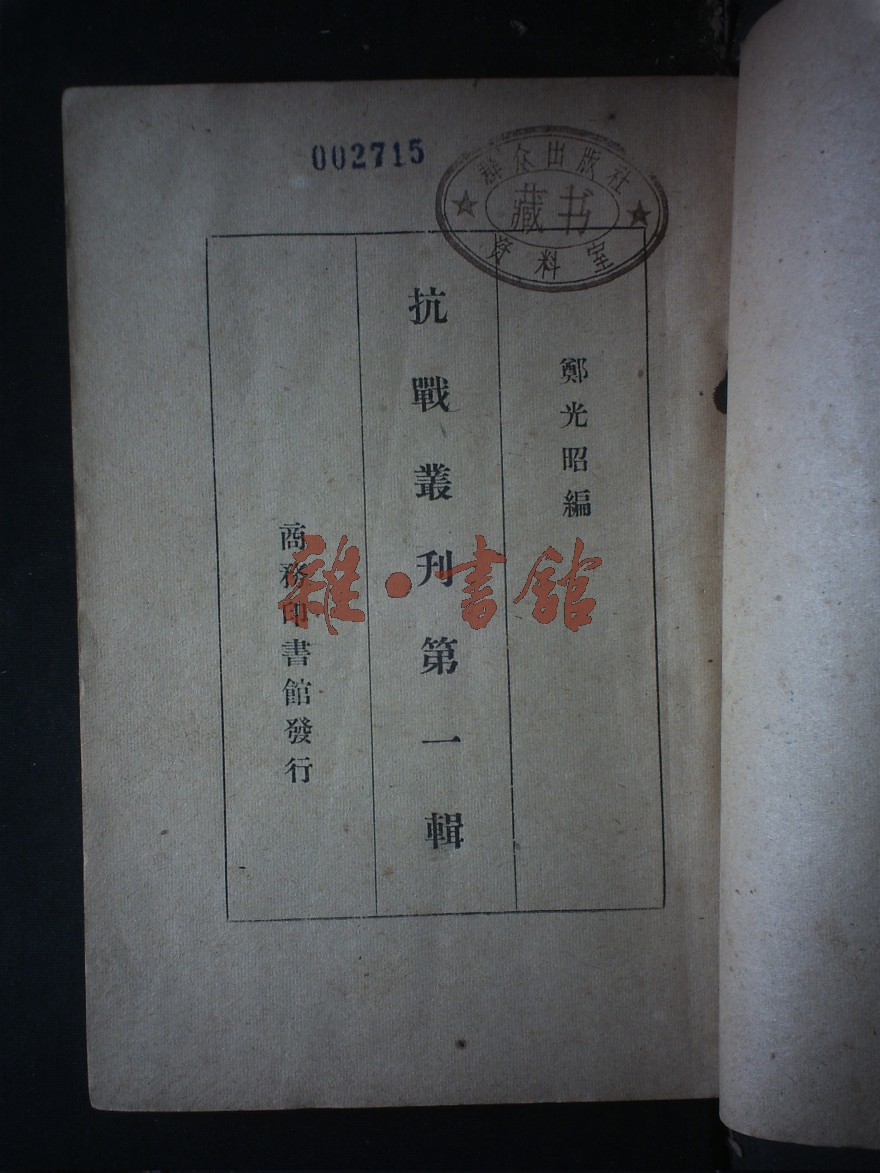 002715
群众出版社
藏书
资料室
鄭光昭編
抗戰叢刊第一輯
商務印書館發行
雜·書館